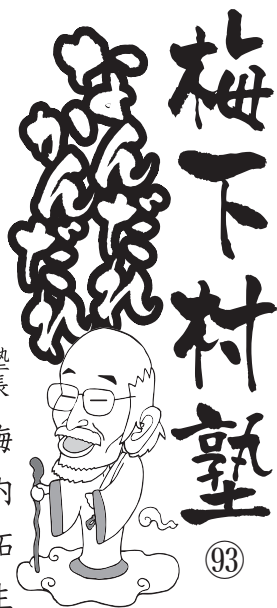 梅下村塾
93
なんだれ
かんだれ
塾長 梅内拓生